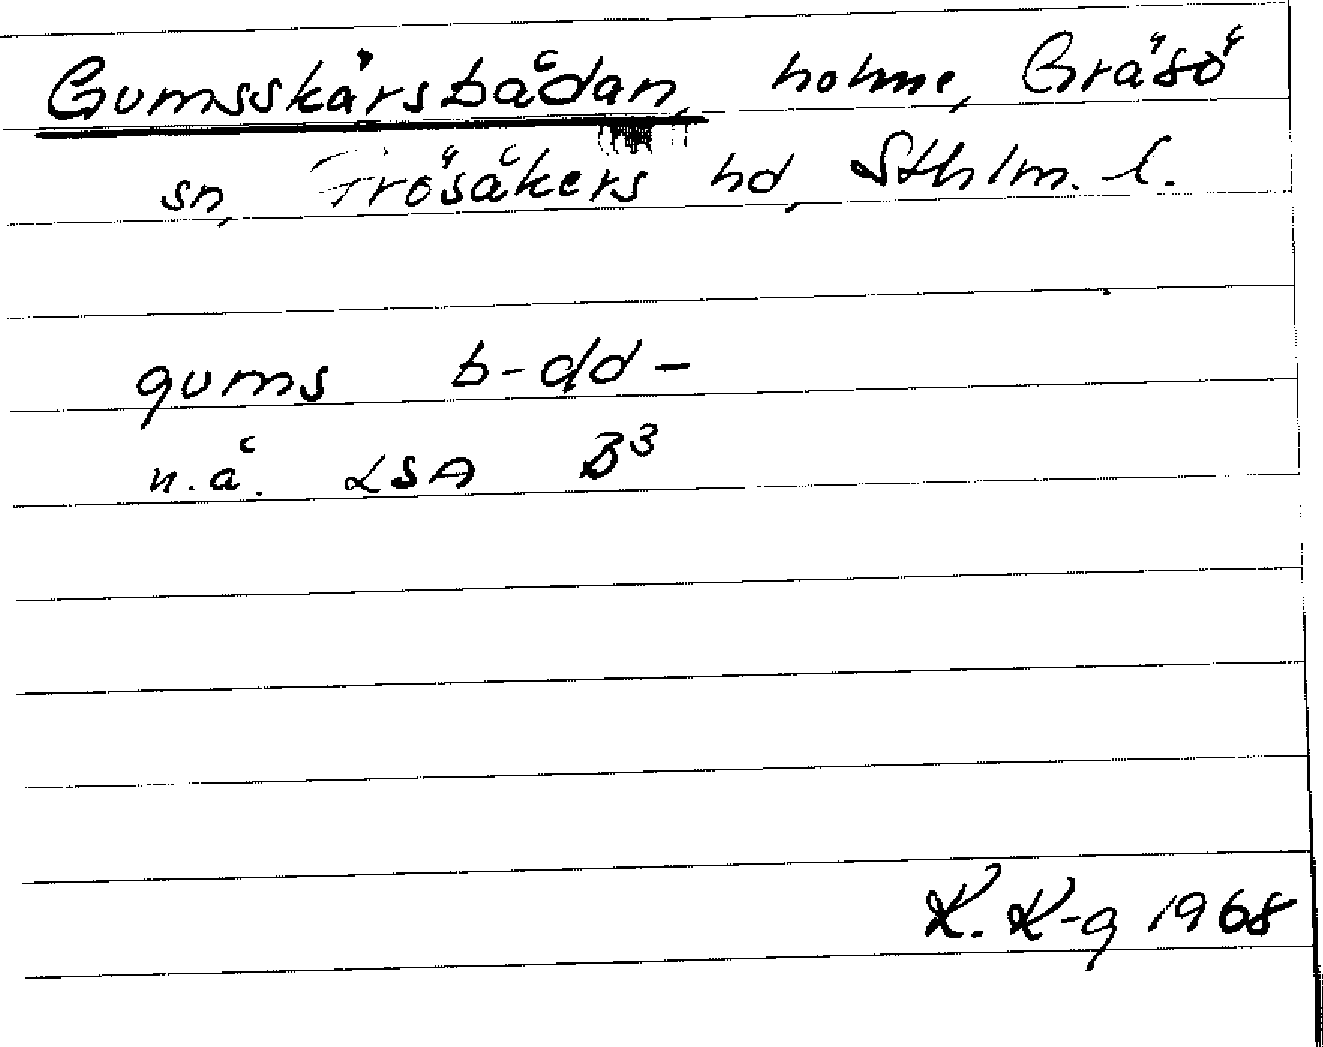 Gumsskärsbådan, holme, Gräsö
sn, Frösåkers hd, Sthlm. l.
gums b-dd-
n.å. LSA B³
K. K-g 1968